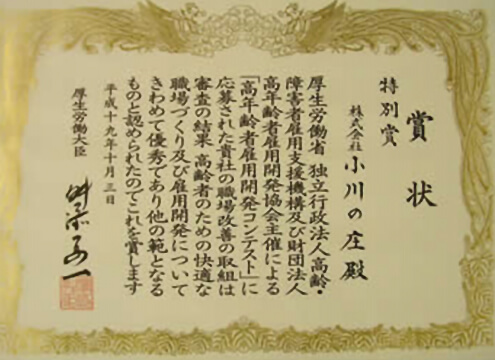 賞状
特別賞
株式会社 小川の庄 殿
厚生労働省 独立行政法人高齢・
障害者雇用支援機構及び財団法人
高年齢者雇用開発協会主催による
「高年齢者雇用開発コンテスト」に
応募された貴社の職場改善の取組は
審査の結果 高齢者のための快適な
職場づくり及び雇用開発について
きわめて優秀であり他の範となる
ものと認められたのでこれを賞します
平成十九年十月三日
厚生労働大臣